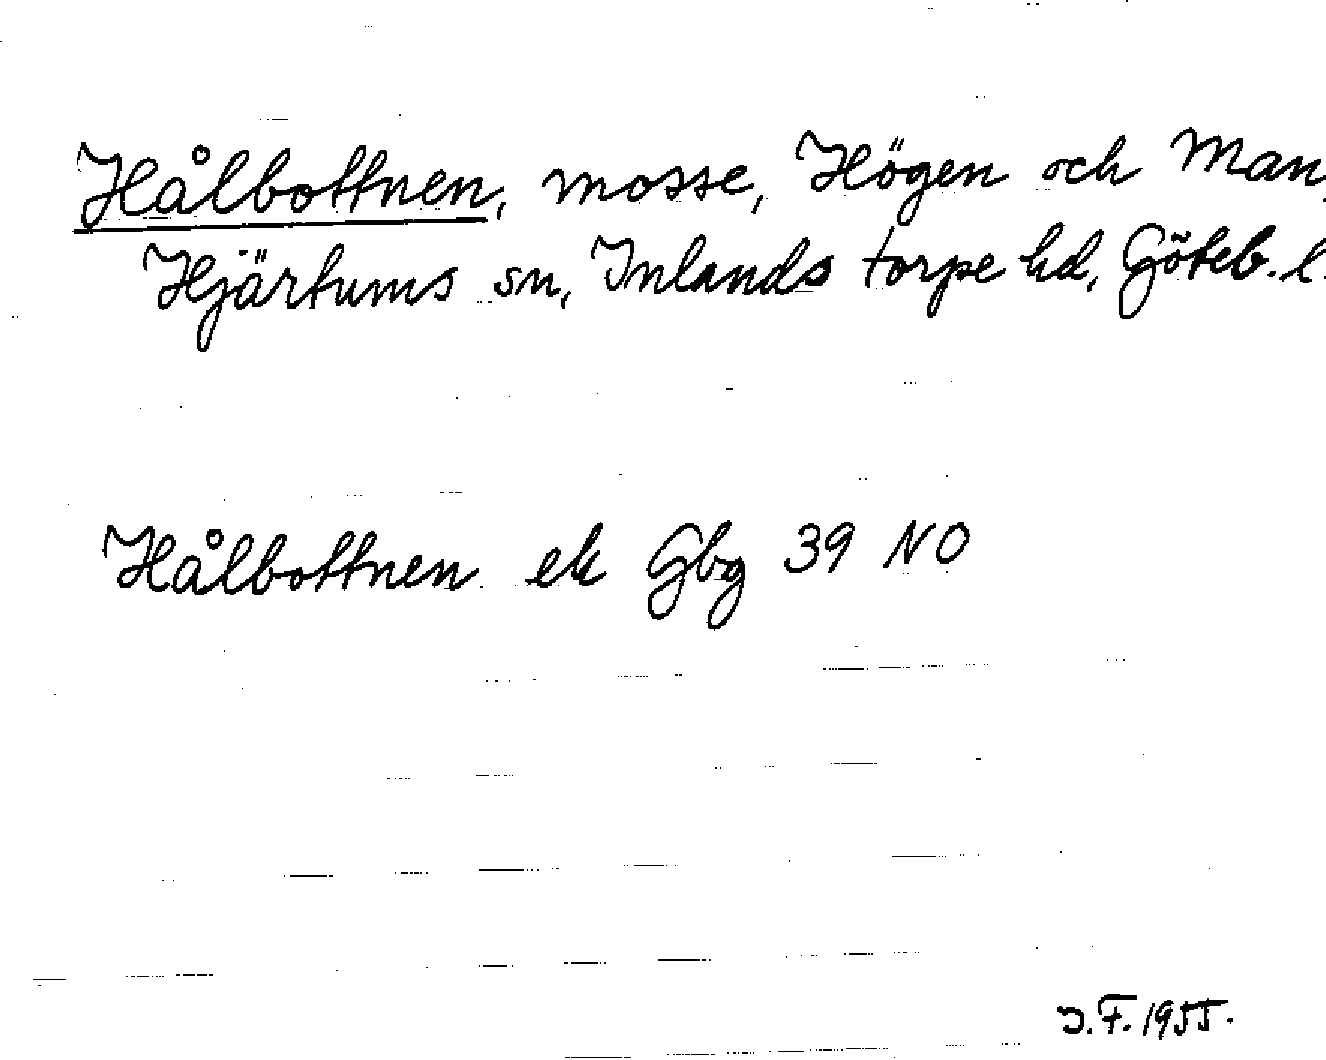 Hålbottnen, mosse, Högen och Man,
Hjärtums sn, Inlands torpe hd, Göteb. l.
Hålbottnen ek Gbg 39 NO
J.F. 1955.